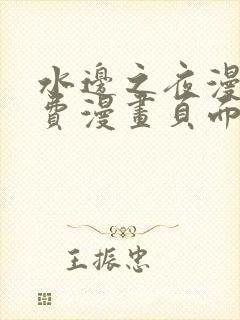 水邊之夜漫
費漫畫頁面
王振忠